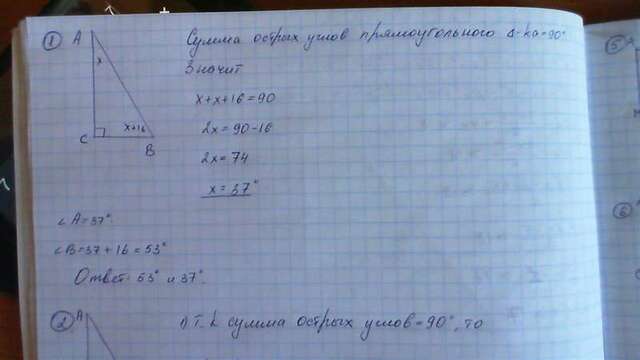 ① A Сумма острых углов прямоугольного Δ-ка=90°
x Значит
x+x+16=90
2x=90-16
x+16
C B
2x=74
x=37°
∠A=37°
∠B=37+16=53°
Ответ: 53° и 37°.
② A 1) Т.к сумма острых углов=90°, то
⑤
⑥